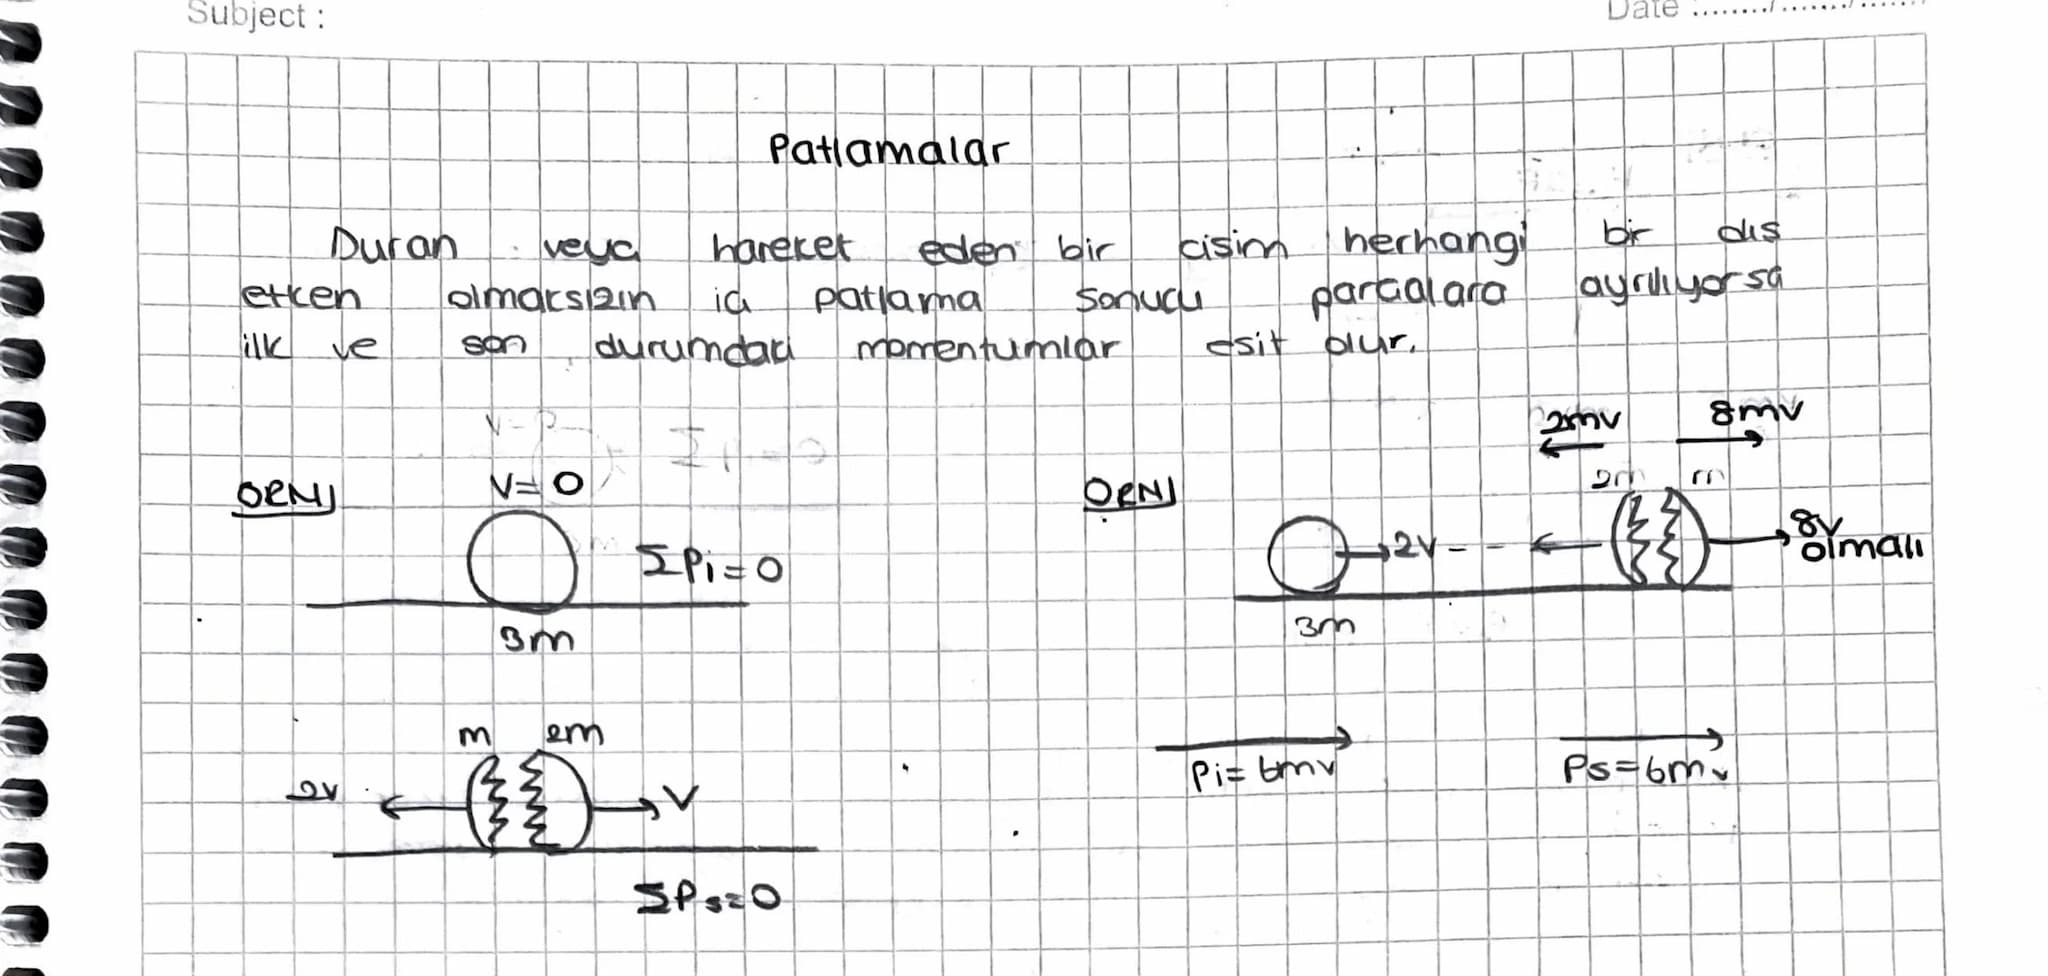 Subject :
Date ......../......../........
Patlamalar
Duran veya hareket eden bir cisim herhangi bir dıs
etken olmaksızın iç patlama sonucu parçalara ayrılıyorsa
ilk ve son durumdaki momentumlar esit olur.
ÖRN
V=0
ΣPi=0
3m
m 2m
2v V
ΣPs=0
ÖRN
2mv 8mv
2m m
2v 8v
olmalı
3m
Pi=6mv Ps=6mv